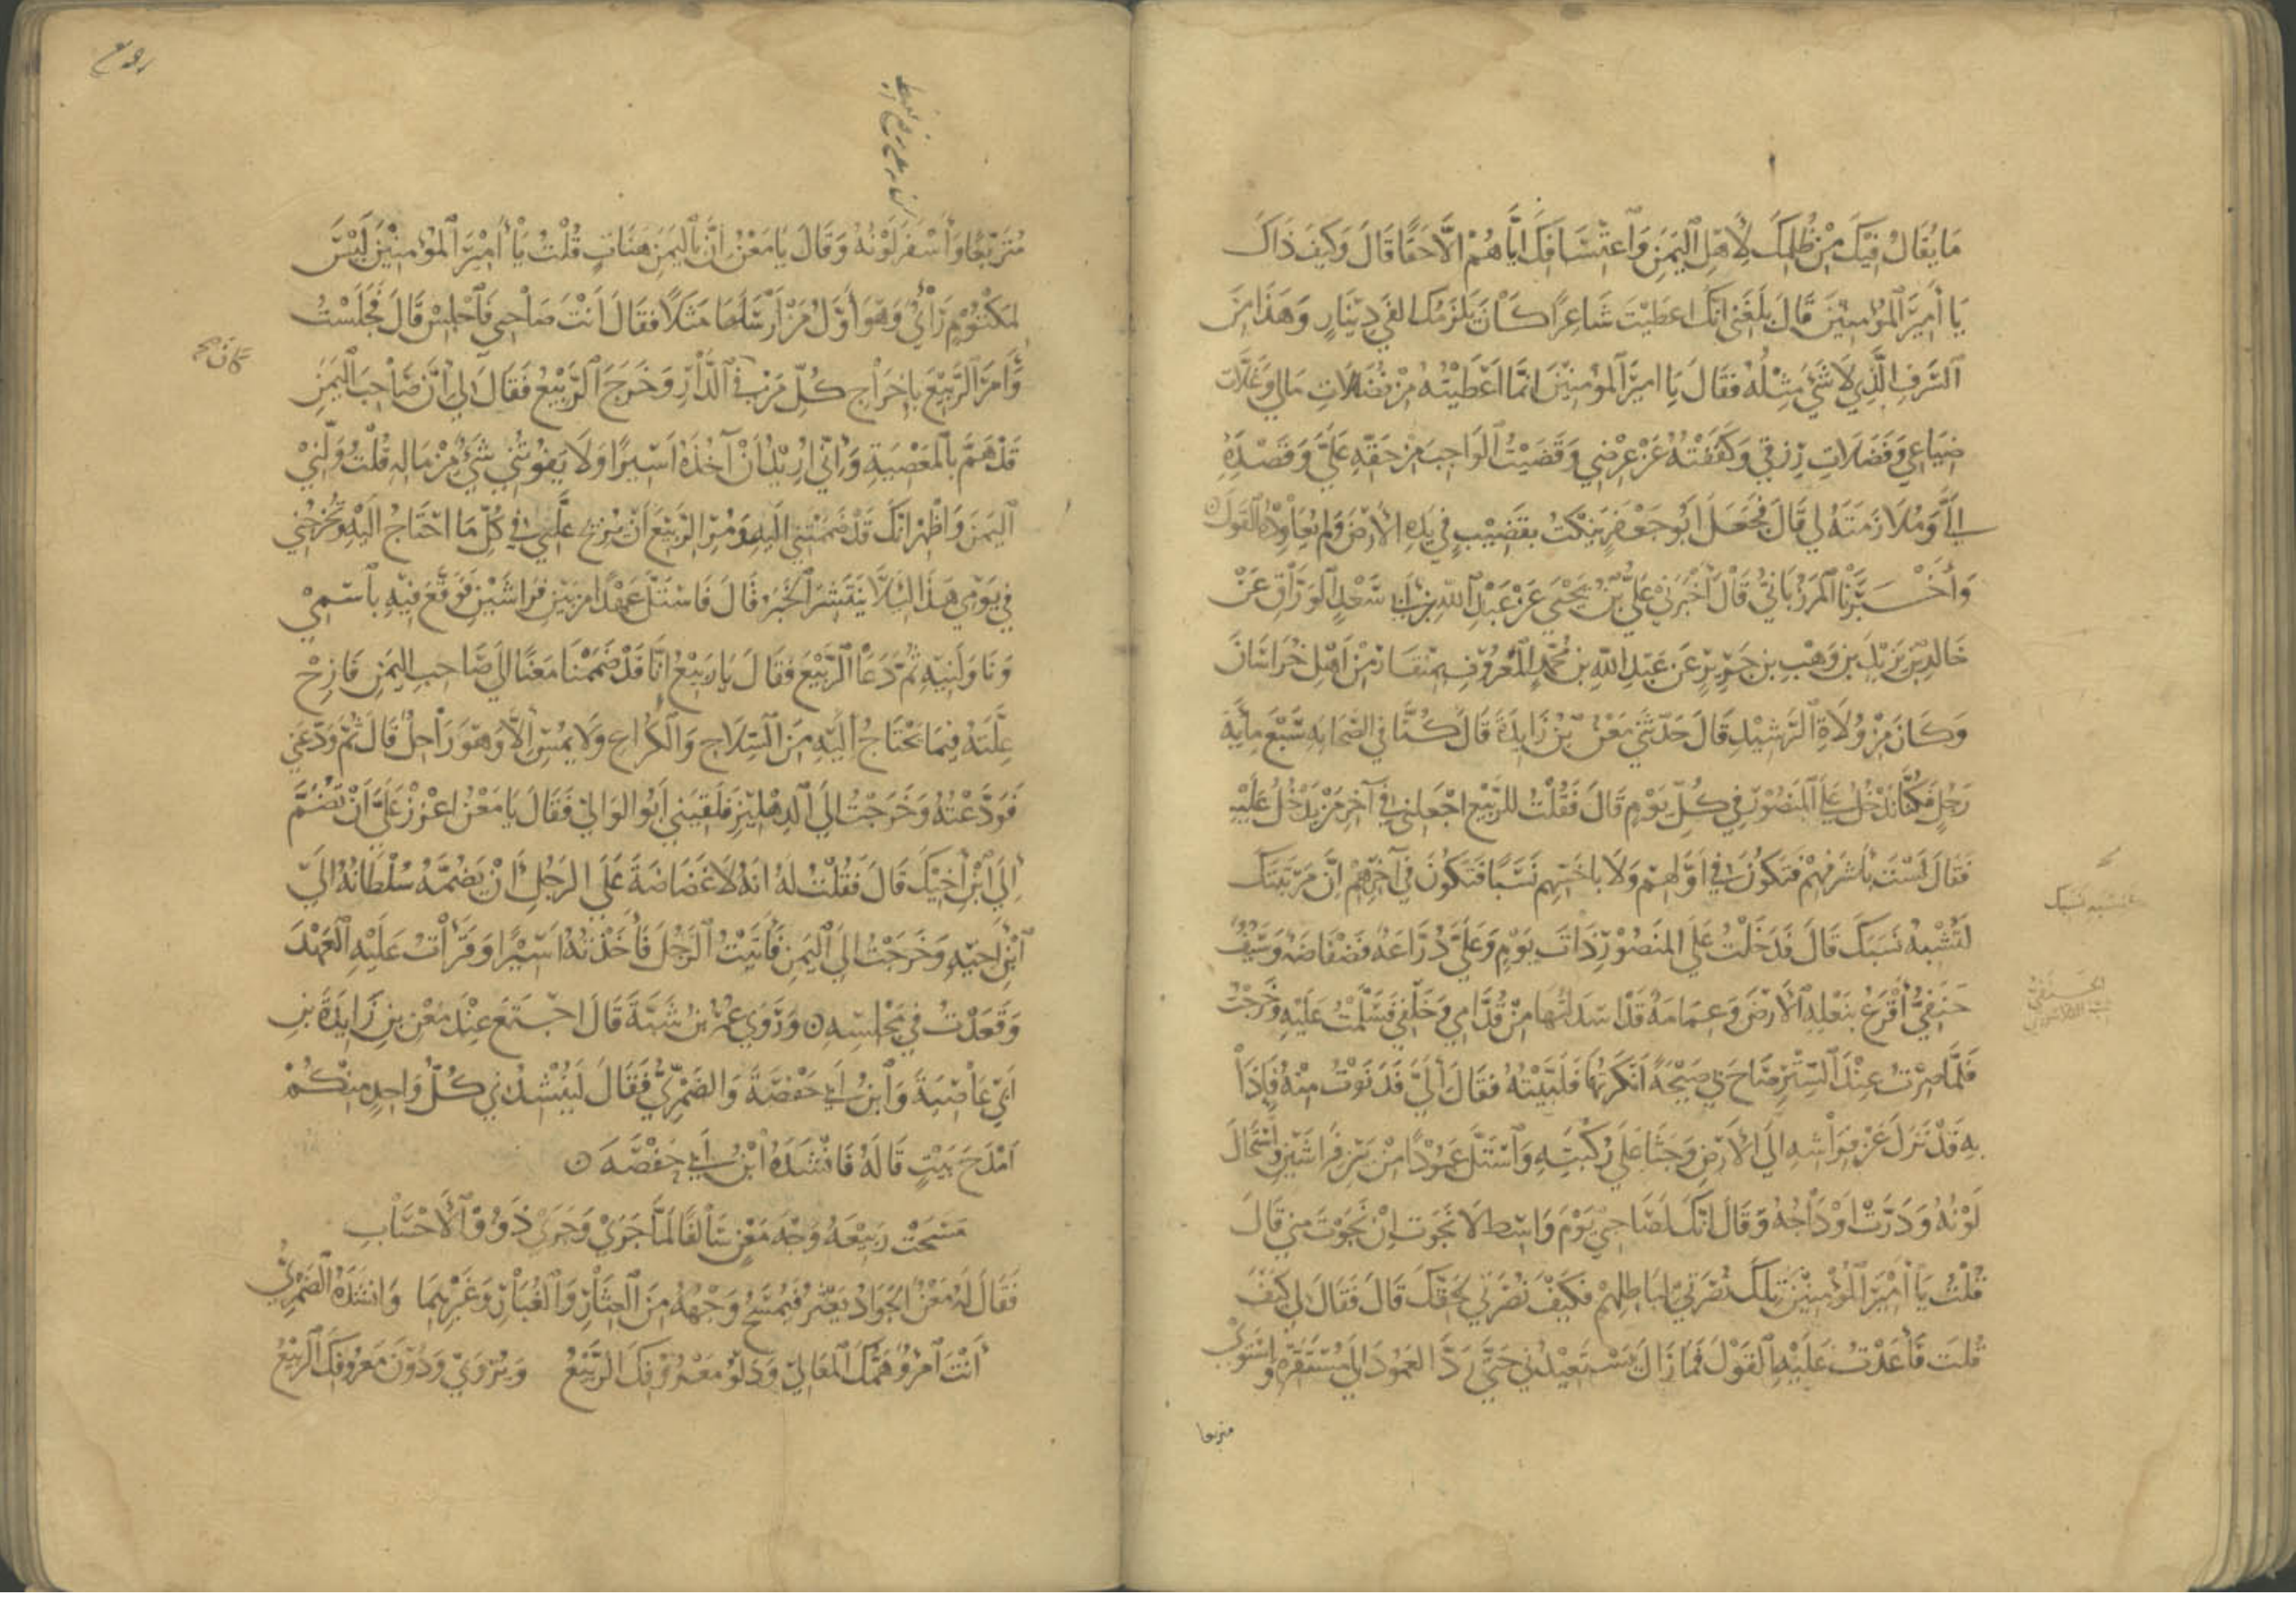 مَا يُقَالُ فِيْكَ مِنْ ظُلْمِكَ لِأَهْلِ الْيَمَنِ وَاعْتِسَافِكَ اِيَّاهُمْ اِلَّا حَقًّا قَالَ وَكَيْفَ ذَاكَ
يَا أَمِيْرَ الْمُؤْمِنِيْنَ قَالَ بَلَغَنِي اَنَّكَ اَعْطَيْتَ شَاعِرًا كَانَ يَلْزَمُكَ اَلْفَيْ دِيْنَارٍ وَهَذَا مِنَ
السَّرَفِ الَّذِي لَا شَيْءَ مِثْلُهُ فَقَالَ يَا اَمِيْرَ الْمُؤْمِنِيْنَ اِنَّمَا اَعْطَيْتُهُ مِنْ فُضَلَاتِ مَالِي وَغَلَّاتِ
ضِيَاعِي وَفَضَلَاتِ رِزْقِي وَكَفَفْتُهُ عَنْ عِرْضِي وَقَضَيْتُ الْوَاجِبَ مِنْ حَقِّهِ عَلَيَّ وَقَصْدِهِ
اِلَيَّ وَمُلَازَمَتَهُ لِي قَالَ فَجَعَلَ اَبُو جَعْفَرٍ يَنْكُتُ بِقَضِيْبٍ فِي يَدِهِ الْاَرْضَ وَلَمْ يُعَاوِدْهُ الْقَوْلَ
وَأَخْبَرَنَا الْمَرْزُبَانِيُّ قَالَ أَخْبَرَنِي عَلِيُّ بْنُ يَحْيَى عَنْ عَبْدِ اللهِ بْنِ أَبِي سَعْدٍ الْوَرَّاقِ عَنْ
خَالِدِ بْنِ يَزِيْدَ بْنِ وَهْبِ بْنِ جَرِيْرٍ عَنْ عَبْدِ اللهِ بْنِ مُحَمَّدٍ الْمَعْرُوْفِ بِمِنْقَارٍ مِنْ اَهْلِ خُرَاسَانَ
وَكَانَ مِنْ وُلَاةِ الرَّشِيْدِ قَالَ حَدَّثَنِي مَعْنُ بْنُ زَايِدَةَ قَالَ كُنَّا فِي الصَّحَابَةِ سَبْعَ مِايَةِ
رَجُلٍ فَكُنَّا نَدْخُلُ عَلَى الْمَنْصُوْرِ فِي كُلِّ يَوْمٍ قَالَ فَقُلْتُ لِلرَّبِيْعِ اجْعَلْنِي فِي آخِرِ مَنْ يَدْخُلُ عَلَيْهِ
فَقَالَ لَسْتَ بِأَشْرَفِهِمْ فَتَكُوْنَ فِي اَوَّلِهِمْ وَلَا بِأَخَسِّهِمْ نَسَبًا فَتَكُوْنَ فِي آخِرِهِمْ اِنَّ مَرْتَبَتَكَ
لَتُشْبِهُ نَسَبَكَ قَالَ فَدَخَلْتُ عَلَى الْمَنْصُوْرِ ذَاتَ يَوْمٍ وَعَلَيَّ دُرَّاعَةٌ فَضْفَاضَةٌ وَسَيْفٌ
حَنَفِيٌّ أَقْرَعُ بِنَعْلِهِ الْأَرْضَ وَعِمَامَةٌ قَدْ اَسْدَلْتُهَا مِنْ قُدَّامِي وَخَلْفِي فَسَلَّمْتُ عَلَيْهِ وَخَرَجْتُ
فَلَمَّا صِرْتُ عِنْدَ السِّتْرِ صَاحَ بِي صَيْحَةً اَنْكَرْتُهَا فَلَبَّيْتُهُ فَقَالَ اِلَيَّ فَدَنَوْتُ مِنْهُ فَإِذَا
بِهِ قَدْ نَزَلَ عَنْ فِرَاشِهِ اِلَى الْاَرْضِ وَجَثَا عَلَى رُكْبَتَيْهِ وَاسْتَلَّ عَمُوْدًا مِنْ بَيْنِ فِرَاشَيْنِ وَاسْتَحَالَ
لَوْنُهُ وَدَرَّتْ اَوْدَاجُهُ وَقَالَ اِنَّكَ لَصَاحِبِي يَوْمَ وَاسِطَ لَا نَجَوْتُ اِنْ نَجَوْتَ مِنِّي قَالَ
قُلْتُ يَا اَمِيْرَ الْمُؤْمِنِيْنَ تِلْكَ نُصْرَتِي لِبَاطِلِهِمْ فَكَيْفَ نُصْرَتِي لِحَقِّكَ قَالَ فَقَالَ لِي كَيْفَ
قُلْتَ فَأَعَدْتُ عَلَيْهِ الْقَوْلَ فَمَا زَالَ يَسْتَعِيْدُنِي حَتَّى رَدَّ الْعَمُوْدَ اِلَى مُسْتَقَرِّهِ وَاسْتَوَى
متربعا
مُتَرَبِّعًا وَأَسْفَرَ لَوْنُهُ وَقَالَ يَا مَعْنُ اِنَّ بِالْيَمَنِ هَنَاتٍ قُلْتُ يَا أَمِيْرَ الْمُؤْمِنِيْنَ لَيْسَ
لِمَكْتُوْمٍ رَأْيٌ وَهُوَ اَوَّلُ مَنْ اَرْسَلَهَا مَثَلًا فَقَالَ اَنْتَ صَاحِبِي فَاجْلِسْ قَالَ فَجَلَسْتُ
وَأَمَرَ الرَّبِيْعَ بِإِخْرَاجِ كُلِّ مَنْ فِي الدَّارِ وَخَرَجَ الرَّبِيْعُ فَقَالَ لِي اِنَّ صَاحِبَ الْيَمَنِ
قَدْ هَمَّ بِالْمَعْصِيَةِ وَاِنِّي اُرِيْدُ اَنْ آخُذَهُ اَسِيْرًا وَلَا يَفُوْتُنِي شَيْءٌ مِنْ مَالِهِ قُلْتُ وَلِّنِي
الْيَمَنَ وَاَظْهِرْ اَنَّكَ قَدْ ضَمَمْتَنِي اِلَيْهِ وَمُرِ الرَّبِيْعَ اَنْ يُزِيْحَ عِلَّتِي فِي كُلِّ مَا اَحْتَاجُ اِلَيْهِ وَيُخْرِجُنِي
فِي يَوْمِي هَذَا لِئَلَّا يَنْتَشِرَ الْخَبَرُ قَالَ فَاسْتَلَّ عَهْدًا مِنْ بَيْنِ فِرَاشَيْنِ فَوَقَّعَ فِيْهِ بِاسْمِي
وَنَاوَلَنِيْهِ ثُمَّ دَعَا الرَّبِيْعَ فَقَالَ يَا رَبِيْعُ اِنَّا قَدْ ضَمَمْنَا مَعْنًا اِلَى صَاحِبِ الْيَمَنِ فَازِحْ
عِلَّتَهُ فِيْمَا يَحْتَاجُ اِلَيْهِ مِنَ السِّلَاحِ وَالْكُرَاعِ وَلَا يُمْسِ اِلَّا وَهُوَ رَاحِلٌ قَالَ ثُمَّ وَدَّعَنِي
فَوَدَّعْتُهُ وَخَرَجْتُ اِلَى الدِّهْلِيْزِ فَلَقِيَنِي اَبُو الْوَالِي فَقَالَ يَا مَعْنُ اعْزُزْ عَلَيَّ اَنْ تُضَمَّ
اِلَى ابْنِ اَخِيْكَ قَالَ فَقُلْتُ لَهُ اِنَّهُ لَا غَضَاضَةَ عَلَى الرَّجُلِ اَنْ يَضُمَّهُ سُلْطَانُهُ اِلَى
ابْنِ اَخِيْهِ وَخَرَجْتُ اِلَى الْيَمَنِ فَأَتَيْتُ الرَّجُلَ فَأَخَذْتُهُ اَسِيْرًا وَقَرَأْتُ عَلَيْهِ الْعَهْدَ
وَقَعَدْتُ فِي مَجْلِسِهِ ۞ وَرَوَى عُمَرُ بْنُ شَبَّةَ قَالَ اجْتَمَعَ عِنْدَ مَعْنِ بْنِ زَايِدَةَ ابْنُ
اَبِي عَاصِيَةَ وَابْنُ اَبِي حَفْصَةَ وَالضَّمْرِيُّ فَقَالَ لِيُنْشِدْنِي كُلُّ وَاحِدٍ مِنْكُمْ
اَمْدَحَ بَيْتٍ قَالَهُ فَانْشَدَهُ ابْنُ اَبِي حَفْصَةَ ۞
مَسَحَتْ رَبِيْعَةُ وَجْهَ مَعْنٍ سَابِقًا لَمَّا جَرَى وَجَرَى ذَوُوْ الْاَحْسَابِ
فَقَالَ لَهُ مَعْنٌ الْجَوَادُ يَعْثُرُ فَيُمْسَحُ وَجْهُهُ مِنَ الْعِثَارِ وَالْغُبَارِ وَغَيْرِهِمَا وَانْشَدَهُ الضَّمْرِيُّ
اَنْتَ امْرُؤٌ هَمُّكَ الْمَعَالِي وَدَلْوُ مَعْرُوْفِكَ الرَّبِيْعُ وَيُرْوَى وَدُوْنَ مَعْرُوْفِكَ الرَّبِيْعُ